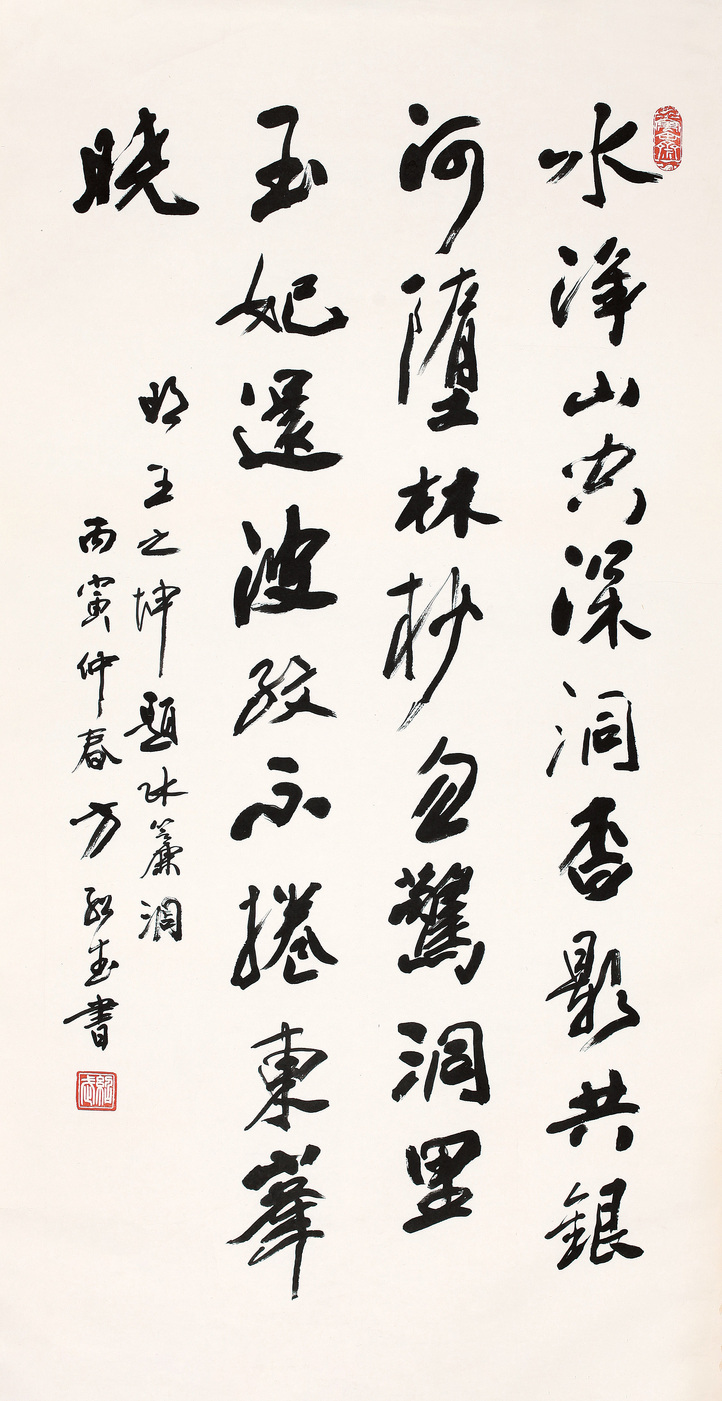 水淨山空深洞杳影共銀
河墮林杪忽驚洞里
玉妃還波紋不捲東峯
曉
明王之坤題水簾洞
丙寅仲春方紹武書
紹武